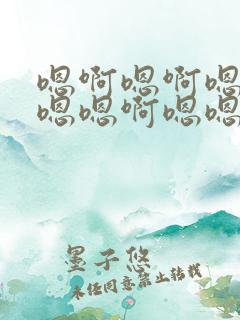 嗯啊嗯啊嗯
嗯嗯啊嗯嗯
墨子悠
未经同意禁止转载